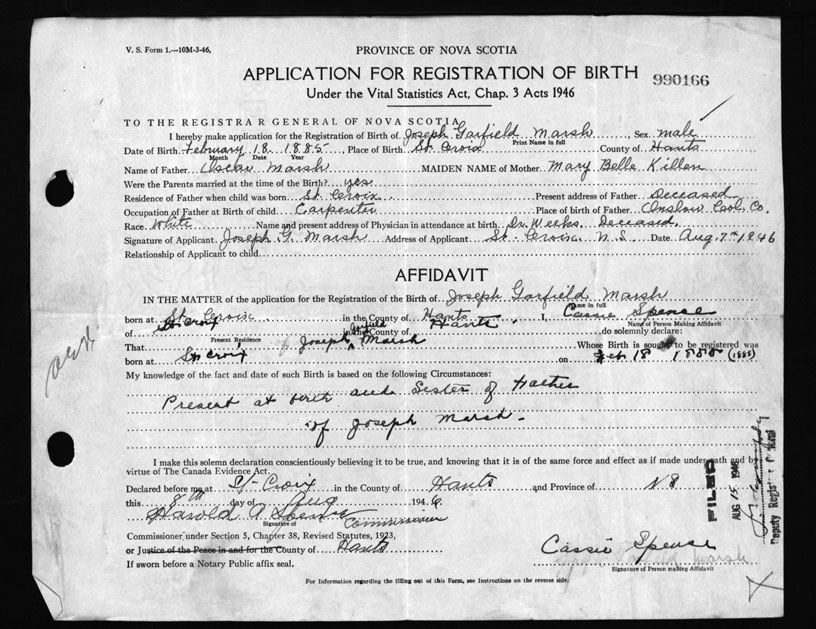 V. S. Form 1.—10M-3-46.
PROVINCE OF NOVA SCOTIA
APPLICATION FOR REGISTRATION OF BIRTH
990166
Under the Vital Statistics Act, Chap. 3 Acts 1946
TO THE REGISTRAR GENERAL OF NOVA SCOTIA
I hereby make application for the Registration of Birth of Joseph Garfield Marsh, Sex male
Print Name in full
Date of Birth February 18 1885 Place of Birth St. Croix County of Hants
Month Date Year
Name of Father Oscar Marsh MAIDEN NAME of Mother Mary Belle Killen
Were the Parents married at the time of the Birth? yes
Residence of Father when child was born St. Croix Present address of Father Deceased
Occupation of Father at Birth of child Carpenter Place of birth of Father Onslow Col. Co.
Race White Name and present address of Physician in attendance at birth Dr. Weeks. Deceased.
Signature of Applicant Joseph G. Marsh Address of Applicant St. Croix N.S. Date Aug. 7th 1946
Relationship of Applicant to child
AFFIDAVIT
IN THE MATTER of the application for the Registration of Birth of Joseph Garfield Marsh
Name in full
born at St. Croix in the County of Hants I, Cassie Spense
Name of Person Making Affidavit
of St Croix in the County of Hants do solemnly declare:
Present Residence
That Joseph Garfield Marsh Whose Birth is sought to be registered was
born at St Croix on Feb 18 1885 (1885)
My knowledge of the fact and date of such Birth is based on the following Circumstances:
Present at birth and Sister of Father
of Joseph Marsh.
I make this solemn declaration conscientiously believing it to be true, and knowing that it is of the same force and effect as if made under oath and by
virtue of The Canada Evidence Act.
Declared before me at St Croix in the County of Hants and Province of N S
this 8th day of Aug 1946
Harold A Spence
Signature of
Commissioner
Commissioner under Section 5, Chapter 38, Revised Statutes, 1923,
or Justice of the Peace in and for the County of Hants
If sworn before a Notary Public affix seal.
Cassie Spense
Marsh
Signature of Person making Affidavit
For Information regarding the filling out of this Form, see Instructions on the reverse side.
FILED
AUG 15 1946
Deputy Regis